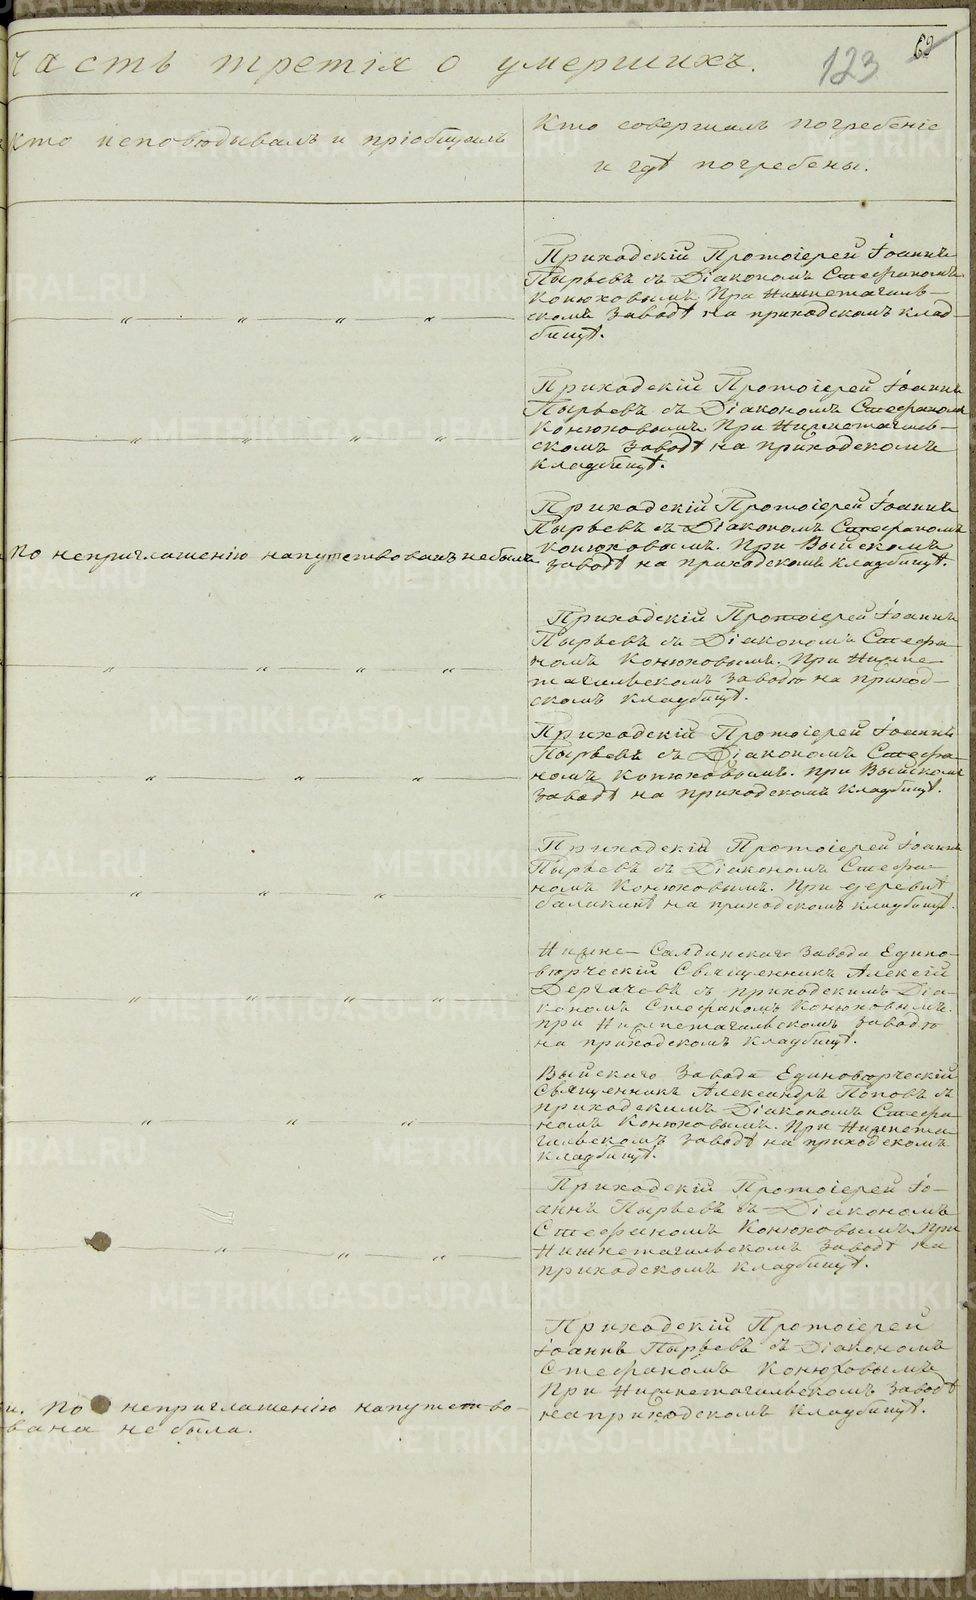 Часть третія о умершихъ.
123
Кто исповѣдывалъ и пріобщалъ
Кто совершалъ погребеніе
и гдѣ погребены.
Приходскій Протоіерей Іоаннъ
Пырьевъ съ Діакономъ Стефаномъ
Конюховымъ. При Нижнетагиль-
скомъ заводѣ на приходскомъ клад-
бищѣ.
Приходскій Протоіерей Іоаннъ
Пырьевъ съ Діакономъ Стефаномъ
Конюховымъ. При Нижнетагиль-
скомъ заводѣ на приходскомъ
кладбищѣ.
По неприглашенію напутствованъ не былъ
Приходскій Протоіерей Іоаннъ
Пырьевъ съ Діакономъ Стефаномъ
Конюховымъ. При Выйскомъ
заводѣ на приходскомъ кладбищѣ.
Приходскій Протоіерей Іоаннъ
Пырьевъ съ Діакономъ Стефа-
номъ Конюховымъ. При Нижне-
тагильскомъ заводѣ на приход-
скомъ кладбищѣ.
Приходскій Протоіерей Іоаннъ
Пырьевъ съ Діакономъ Стефа-
номъ Конюховымъ. при Выйскомъ
заводѣ на приходскомъ кладбищѣ.
Приходскій Протоіерей Іоаннъ
Пырьевъ съ Діакономъ Стефа-
номъ Конюховымъ. При деревнѣ
Балакинѣ на приходскомъ кладбищѣ.
Нижне-Салдинскаго завода Едино-
вѣрческій Священникъ Алексій
Дергачовъ съ приходскимъ Діа-
кономъ Стефаномъ Конюховымъ.
при Нижнетагильскомъ заводѣ
на приходскомъ кладбищѣ.
Выйскаго завода Единовѣрческій
Священникъ Александръ Поповъ съ
приходскимъ Діакономъ Стефа-
номъ Конюховымъ. При Нижнета-
гильскомъ заводѣ на приходскомъ
кладбищѣ.
Приходскій Протоіерей Іо-
аннъ Пырьевъ съ Діакономъ
Стефаномъ Конюховымъ. При
Нижнетагильскомъ заводѣ на
приходскомъ кладбищѣ.
Приходскій Протоіерей
Іоаннъ Пырьевъ съ Діакономъ
Стефаномъ Конюховымъ
При Нижнетагильскомъ заводѣ
на приходскомъ кладбищѣ.
и. По неприглашенію напутство-
вана не была.